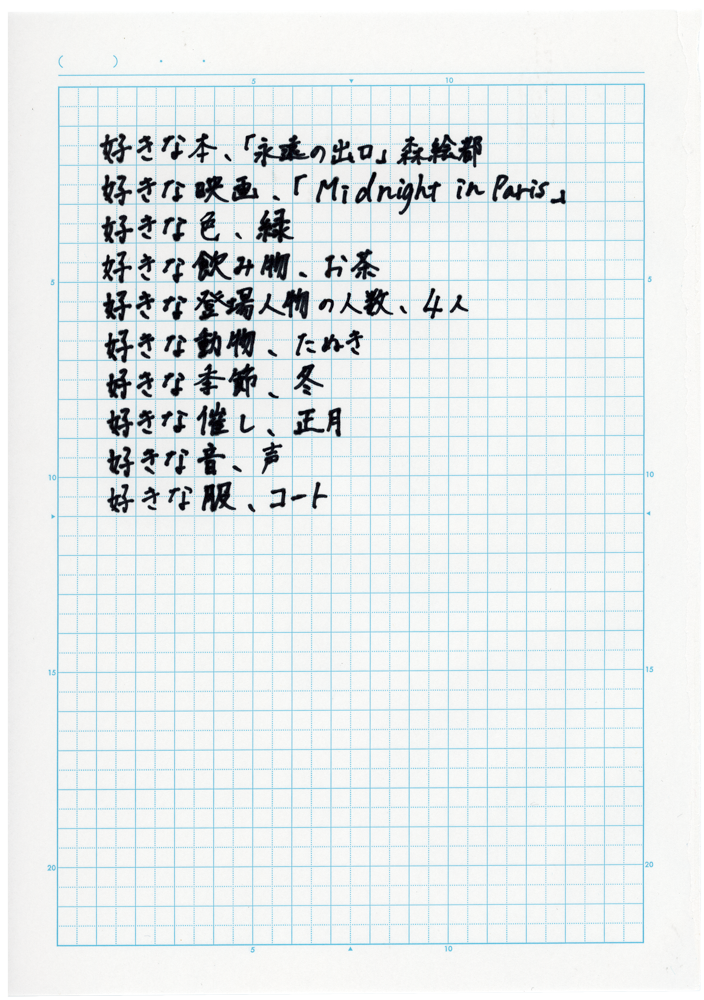 ( ) ・ ・
5 10
好きな本、「永遠の出口」森絵都
好きな映画、「Midnight in Paris」
好きな色、緑
好きな飲み物、お茶
5 5
好きな登場人物の人数、4人
好きな動物、たぬき
好きな季節、冬
好きな催し、正月
好きな音、声
10 10
好きな服、コート
15 15
20 20
5 10